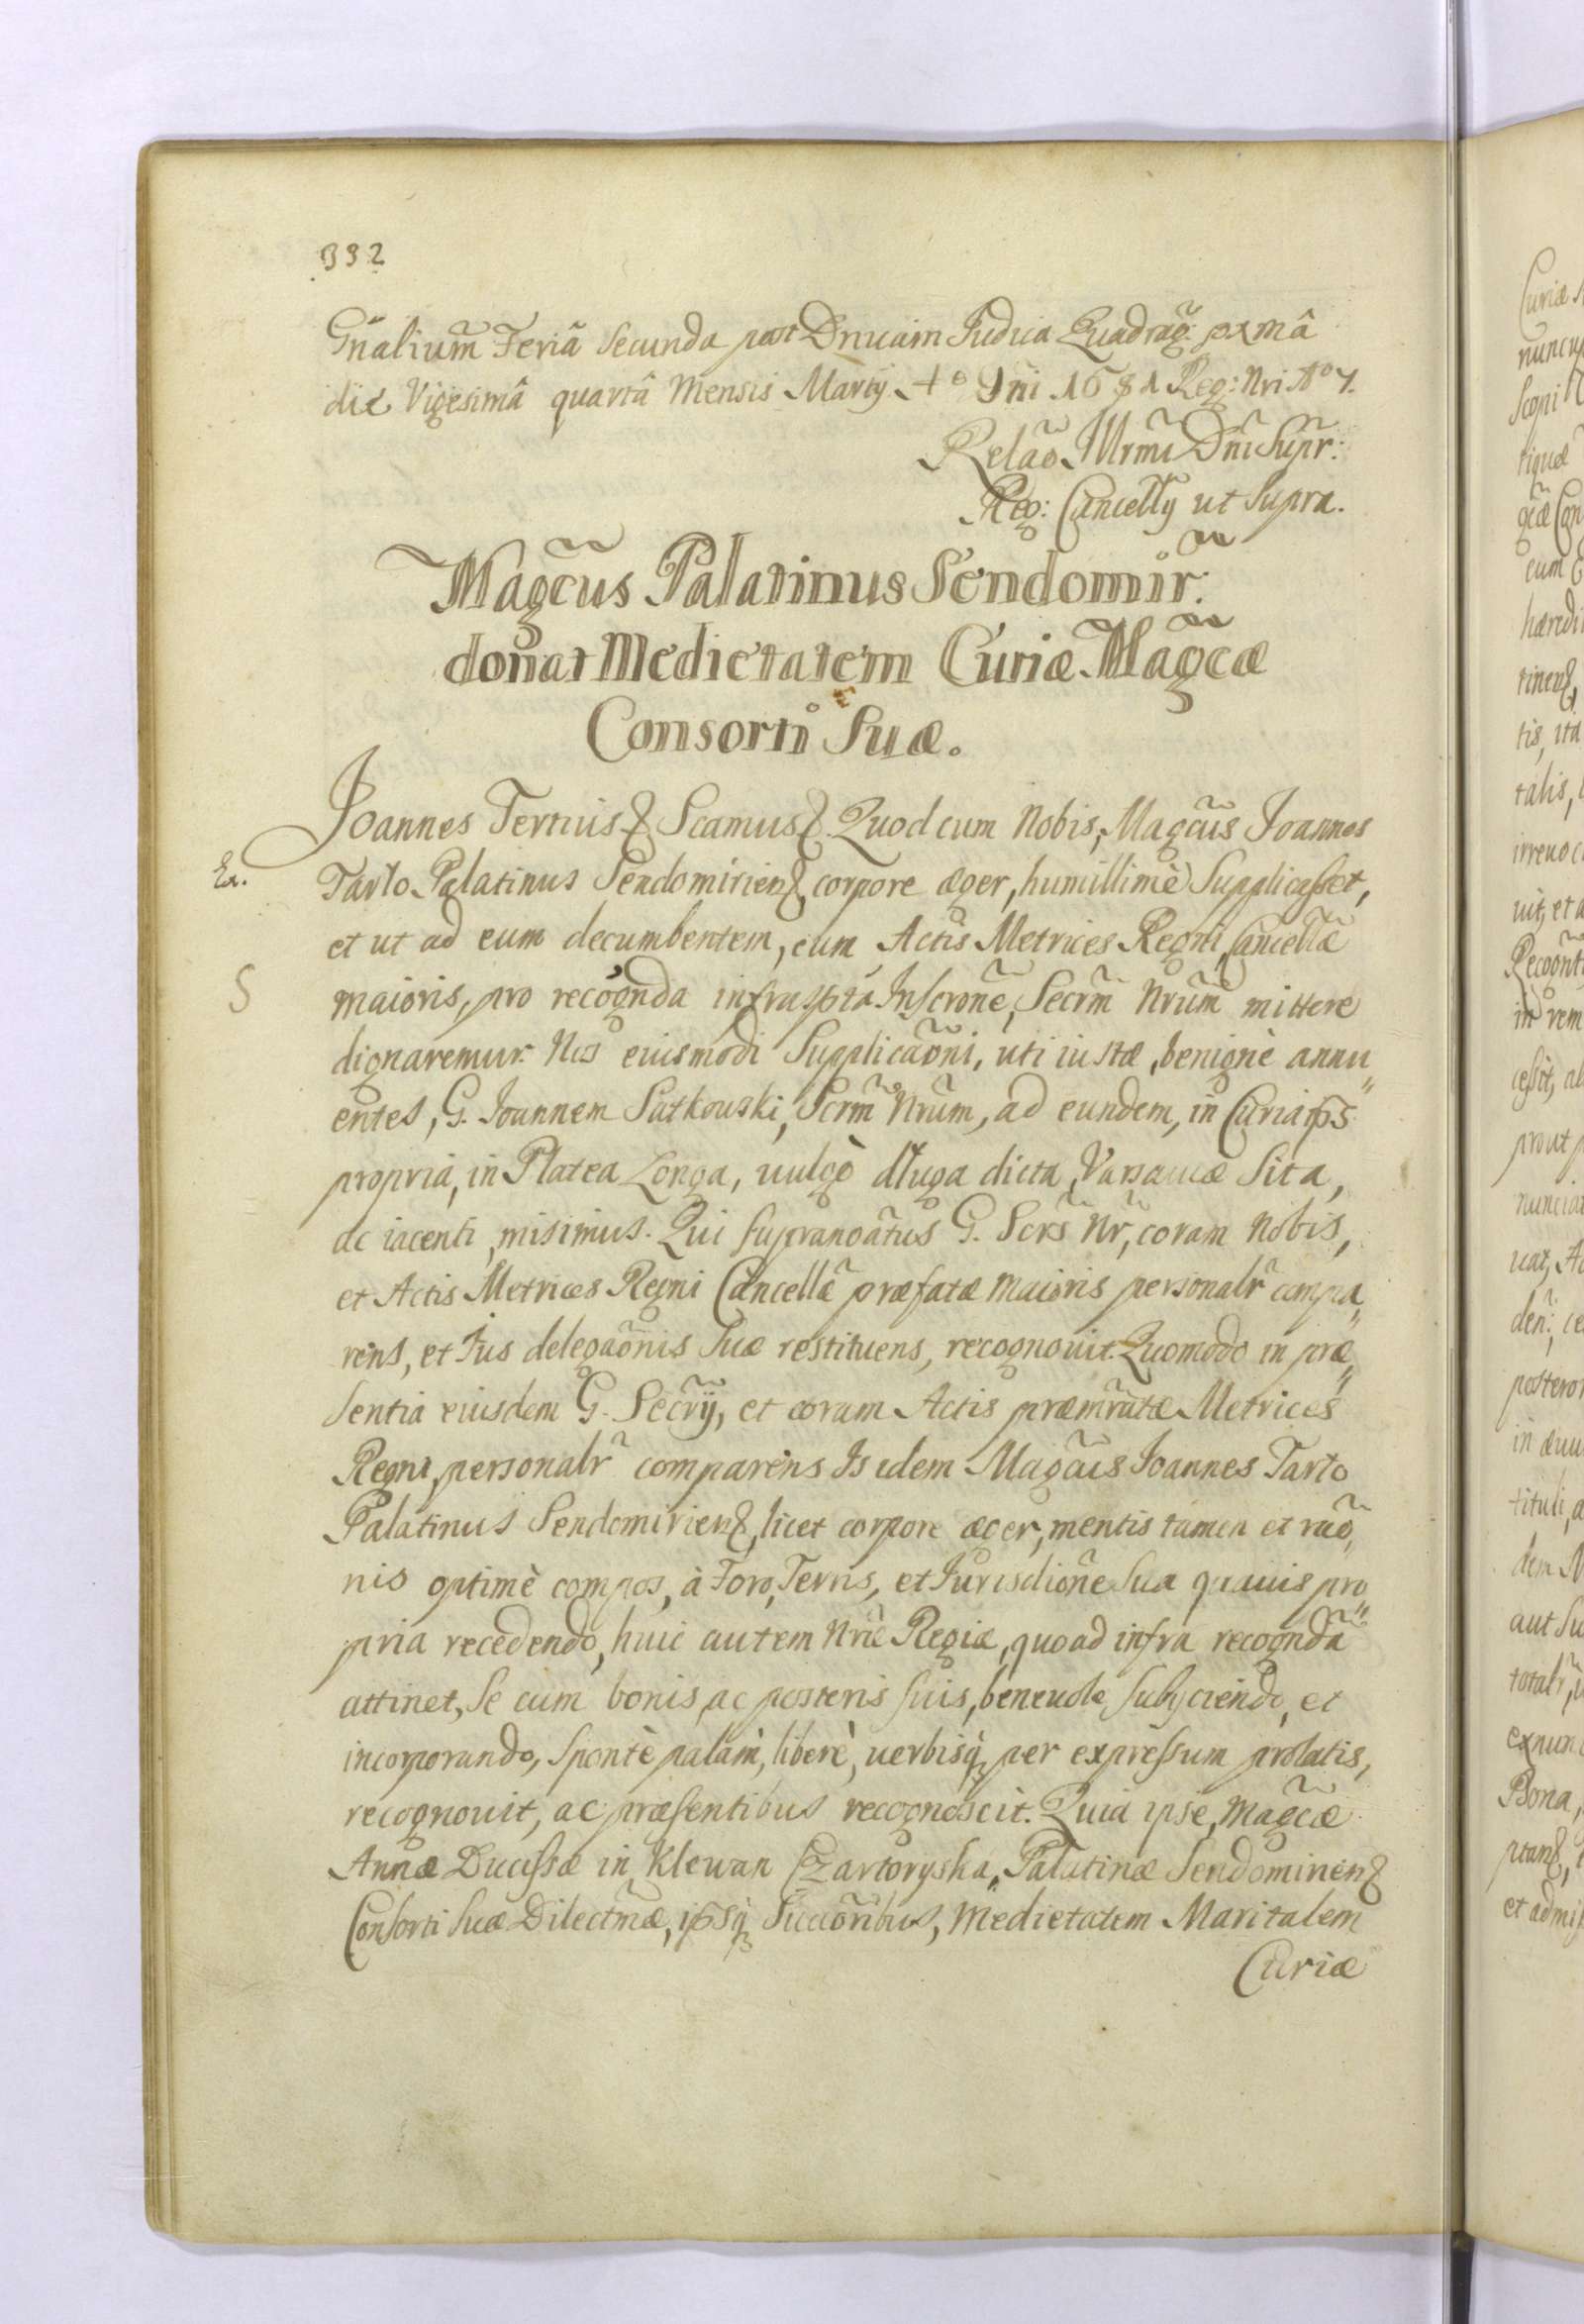 332
Gñalium̃ Feriâ Secunda post Dnicam Judica Quadrag: pxmâ
die Vigesimâ quartâ Mensis Martij Aº Dñi 1681 Reg: Nri Aº 7.
Relaõ Illrmi Dñi Supr:
Reg: Cancellÿ ut Supra.
Magc̃us Palatinus Sendomir:
donat Medietatem Curiæ Magc̃æ
Consorti Suæ.
Joannes Tertius & Scamus &. Quod cum Nobis, Magc̃us Joannes
Ex.
Tarło Palatinus Sendomiriens, corpore æger, humillimè Supplicasset,
et ut ad eum decumbentem, cum Actis Metrices Regni, Cancellæ
S
maioris, pro recognda infraspta Inscrone, Secrm̃ Nrum̃ mittere
dignaremur. Nos eiusmodi Supplicaõni, uti iustæ, benignè annu„
entes, G. Joannem Satkouski, Scrm̃ Nrum, ad eundem, in Curia ips
propria, in Platea Longa, uulgò długa dicta, Varsauiæ Sita,
ac iacenti, misimus. Qui supranoãtus G. Scrs̃ Nr̃, coram Nobis,
et Actis Metrices Regni Cancellæ præfatæ maioris personalr̃ compa„
rens, et Jus delegaõnis Suæ restituens, recognouit. Quomodo in præ„
sentia eiusdem G. Secrij̃, et coram Actis præmratæ Metrices
Regni, personalr̃ comparens Is idem Magc̃us Joannes Tarło
Palatinus Sendomiriens, licet corpore æger, mentis tamen et raõ„
nis optimè compos, à Foro, Terris, et Jurisdiõne Sua quauis pro„
pria recedendo, huic autem Nræ Regiæ, quoad infra recogndã
attinet, Se cum bonis, ac posteris suis, beneuole subijciendo, et
incorporando, Spontè palàm, liberè, uerbisq̃ per expressum prolatis,
recognouit, ac præsentibus recognoscit. Quia ipse, Magc̃æ
Annæ Ducissæ in Klewan Czartoryska, Palatinæ Sendomiriens
Consorti suæ Dilectmæ, ipsq̃ Succoribus, Medietatem Maritalem
Curiæ